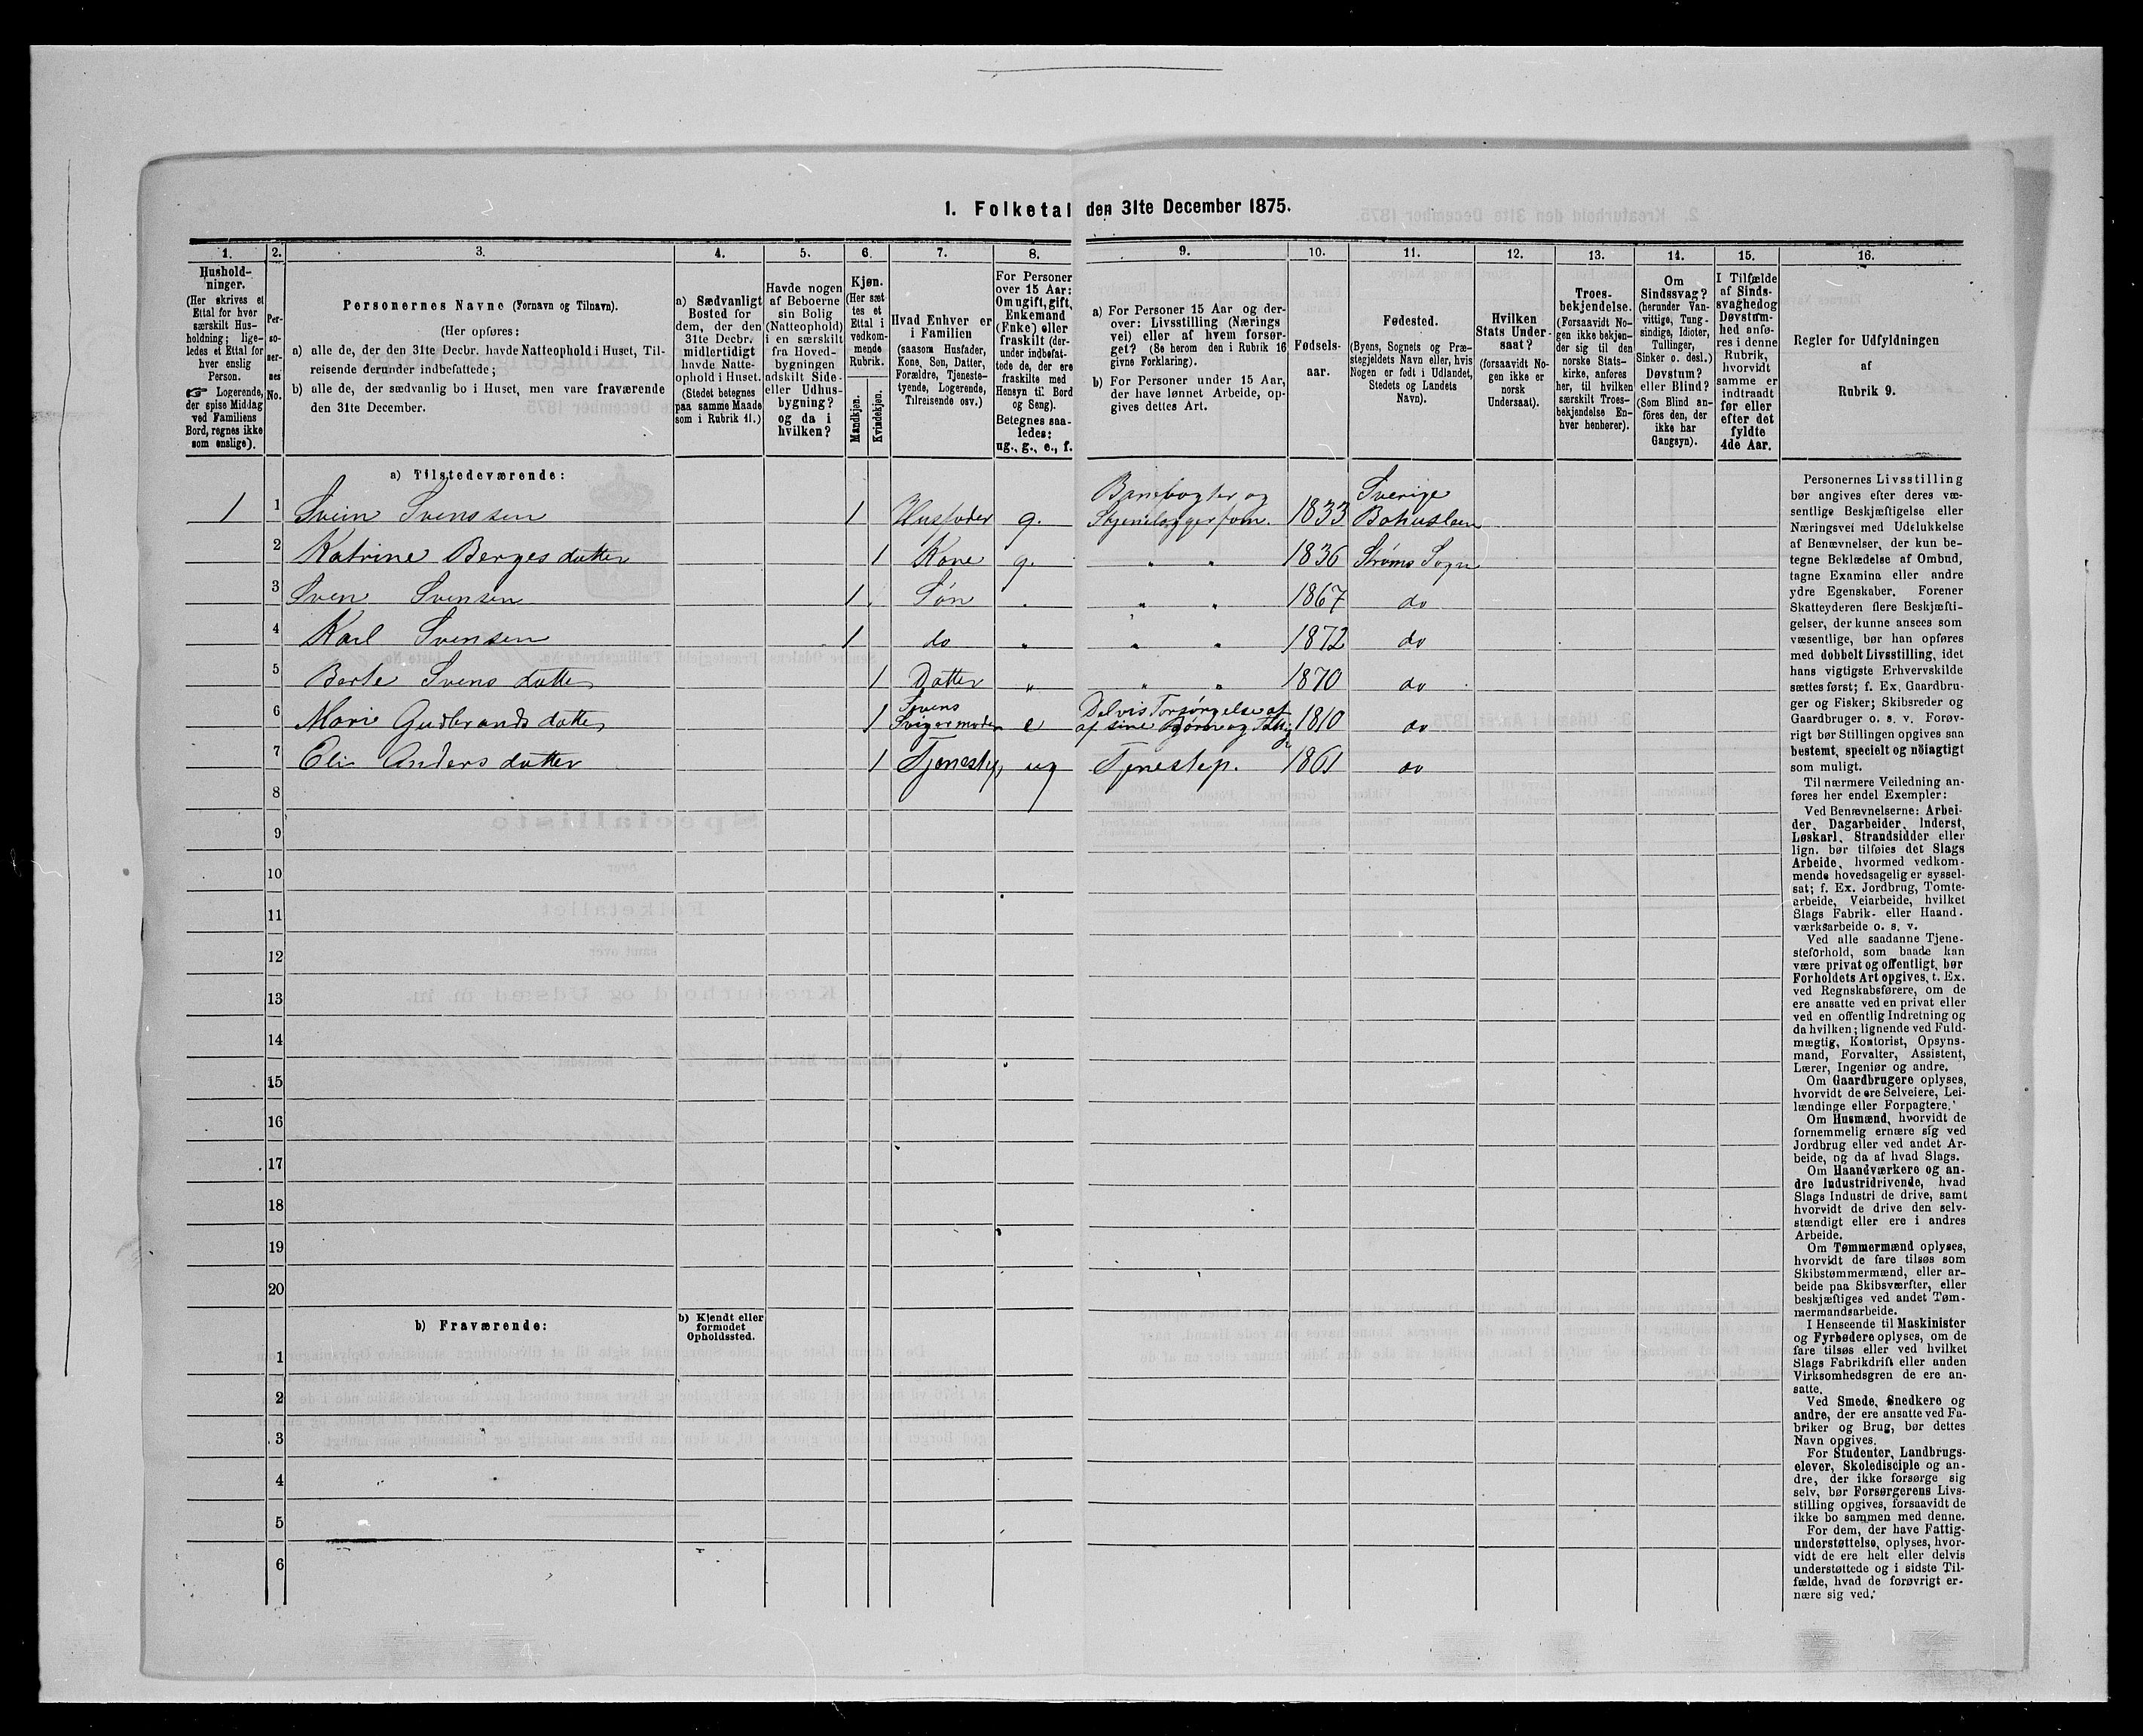 1. Folketal den 31te December 1875.
1.
Hushold-
ninger.
(Her skrives et
Ettal for hver
særskilt Hus-
holdning; lige-
ledes et Ettal for
hver enslig
Person.
☞ Logerende,
der spise Middag
ved Familiens
Bord, regnes ikke
som enslige).
2.
Per-
so-
ner-
nes
No.
3.
Personernes Navne (Fornavn og Tilnavn).
(Her opføres:
a) alle de, der den 31te Decbr. havde Natteophold i Huset, Til-
reisende derunder indbefattede;
b) alle de, der sædvanlig bo i Huset, men vare fraværende
den 31te December.
4.
a) Sædvanligt
Bosted for
dem, der den
31te Decbr.
midlertidigt
havde Natte-
ophold i Huset.
(Stedet betegnes
paa samme Maade
som i Rubrik 11.)
5.
Havde nogen
af Beboerne
sin Bolig
(Natteophold)
i en særskilt
fra Hoved-
bygningen
adskilt Side-
eller Udhus-
bygning?
og da i
hvilken?
6.
Kjøn.
(Her sæt
tes et
Ettal i
vedkom-
mende
Rubrik.
Mandkjøn.
Kvindekjøn.
7.
Hvad Enhver er
i Familien
(saasom Husfader,
Kone, Søn, Datter,
Forældre, Tjeneste-
tyende, Logerende,
Tilreisende osv.)
8.
For Personer
over 15 Aar:
Om ugift, gift,
Enkemand
(Enke) eller
fraskilt (der-
under indbefat-
tede de, der ere
fraskilte med
Hensyn til Bord
og Seng).
Betegnes saa-
ledes:
ug., g., e., f.
9.
a) For Personer 15 Aar og der-
over: Livsstilling (Nærings
vei) eller af hvem forsør-
get? (Se herom den i Rubrik 16
givne Forklaring).
b) For Personer under 15 Aar,
der have lønnet Arbeide, op-
gives dettes Art.
10.
Fødsels-
aar.
11.
Fødested.
(Byens, Sognets og Præ-
stegjeldets Navn eller, hvis
Nogen er født i Udlandet,
Stedets og Landets
Navn).
12.
Hvilken
Stats Under-
saat?
(forsaavidt No-
gen ikke er
norsk
Undersaat).
13.
Troes-
bekjendelse.
(Forsaavidt No-
gen ikke bekjen-
der sig til den
norske Stats-
kirke, anføres
her, til hvilken
særskilt Troes-
bekjendelse En-
hver henhører).
14.
Om
Sindssvag?
(herunder Van-
vittige, Tung-
sindige, Idioter,
Tullinger,
Sinker o. desl.)
Døvstum?
eller Blind?
(Som Blind an-
føres den, der
ikke har
Gangsyn).
15.
I Tilfælde
af Sinds-
svaghed og
Døvstum-
hed anfø-
res i denne
Rubrik,
hvorvidt
samme er
indtraadt
før eller
efter det
fyldte
4de Aar.
16.
Regler for Udfyldningen
af
Rubrik 9.
a) Tilstedeværende:
1 1 Svein Svenssen 1 Husfader g. Banevogter og Skjenelægger 1833 Sverige Bahuslæn
2 Katrine Bergesdatter 1 Kone g. " " 1836 Strøms Sogn
3 Sven Svensen 1 Søn . " " 1867 do
4 Karl Svensen 1 do " " " 1872 do
5 Berte Svensdatter 1 Datter " " " 1870 do
6 Marie Gudbrandsdatter 1 Svigermoder e Delvis Forsørgelse af sine Børn og 1810 do
7 Eli Andersdatter 1 Tjenestep. ug Tjenestep. 1861 do
8
9
10
11
12
13
14
15
16
17
18
19
20
b) Fraværende:
b) Kjendt eller
formodet
Opholdssted.
1
2
3
4
5
6
Personernes Livsstilling
bør angives efter deres væ-
sentlige Beskjæftigelse eller
Næringsvei med Udelukkelse
af Benævnelser, der kun be-
tegne Beklædelse af Ombud,
tagne Examina eller andre
ydre Egenskaber. Forener
Skatteyderen flere Beskjæfti-
gelser, der kunne ansees som
væsentlige, bør han opføres
med dobbelt Livsstilling, idet
hans vigtigste Erhvervskilde
sættes først; f. Ex. Gaardbru-
ger og Fisker; Skibsreder og
Gaardbruger o. s. v. Forøv-
rigt bør Stillingen opgives saa
bestemt, specielt og nøiagtigt
som muligt.
Til nærmere Veiledning an-
føres her endel Exempler:
Ved Benævnelserne: Arbei-
der, Dagarbeider, Inderst,
Løskarl, Strandsidder eller
lign. bør tilføies det Slags
Arbeide, hvormed vedkom-
mende hovedsagelig er syssel-
sat; f. Ex. Jordbrug, Tomte-
arbeide, Veiarbeide, hvilket
Slags Fabrik- eller Haand-
værksarbeide o. s. v.
Ved alle saadanne Tjene-
steforhold, som baade kan
være privat og offentligt, bør
Forholdets Art opgives, t. Ex.
ved Regnskabsførere, om de
ere ansatte ved en privat eller
ved en offentlig Indretning og
da hvilken; lignende ved Fuld-
mægtig, Kontorist, Opsyns-
mand, Forvalter, Assistent,
Lærer, Ingeniør og andre.
Om Gaardbrugere oplyses,
hvorvidt de ere Selveiere, Lei-
lændinge eller Forpagtere.
Om Husmænd, hvorvidt de
fornemmelig ernære sig ved
Jordbrug eller ved andet Ar-
beide, og da af hvad Slags.
Om Haandværkere og an-
dre Industridrivende, hvad
Slags Industri de drive, samt
hvorvidt de drive den selv-
stændigt eller ere i andres
Arbeide.
Om Tømmermænd oplyses,
hvorvidt de fare tilsøs som
Skibstømmermænd, eller ar-
beide paa Skibsværfter, eller
beskjæftiges ved andet Tøm-
mermandsarbeide.
I Henseende til Maskinister
og Fyrbødere oplyses, om de
fare tilsøs eller ved hvilket
Slags Fabrikdrift eller anden
Virksomhedsgren de ere an-
satte.
Ved Smede, Snedkere og
andre, der ere ansatte ved Fa-
briker og Brug, bør dettes
Navn opgives.
For Studenter, Landbrugs-
elever, Skoledisciple og an-
dre, der ikke forsørge sig
selv, bør Forsørgerens Livs-
stilling opgives, forsaavidt de
ikke bo sammen med denne.
For dem, der have Fattig-
understøttelse, oplyses, hvor-
vidt de ere helt eller delvis
understøttede og i sidste Til-
fælde, hvad de forøvrigt er-
nære sig ved.